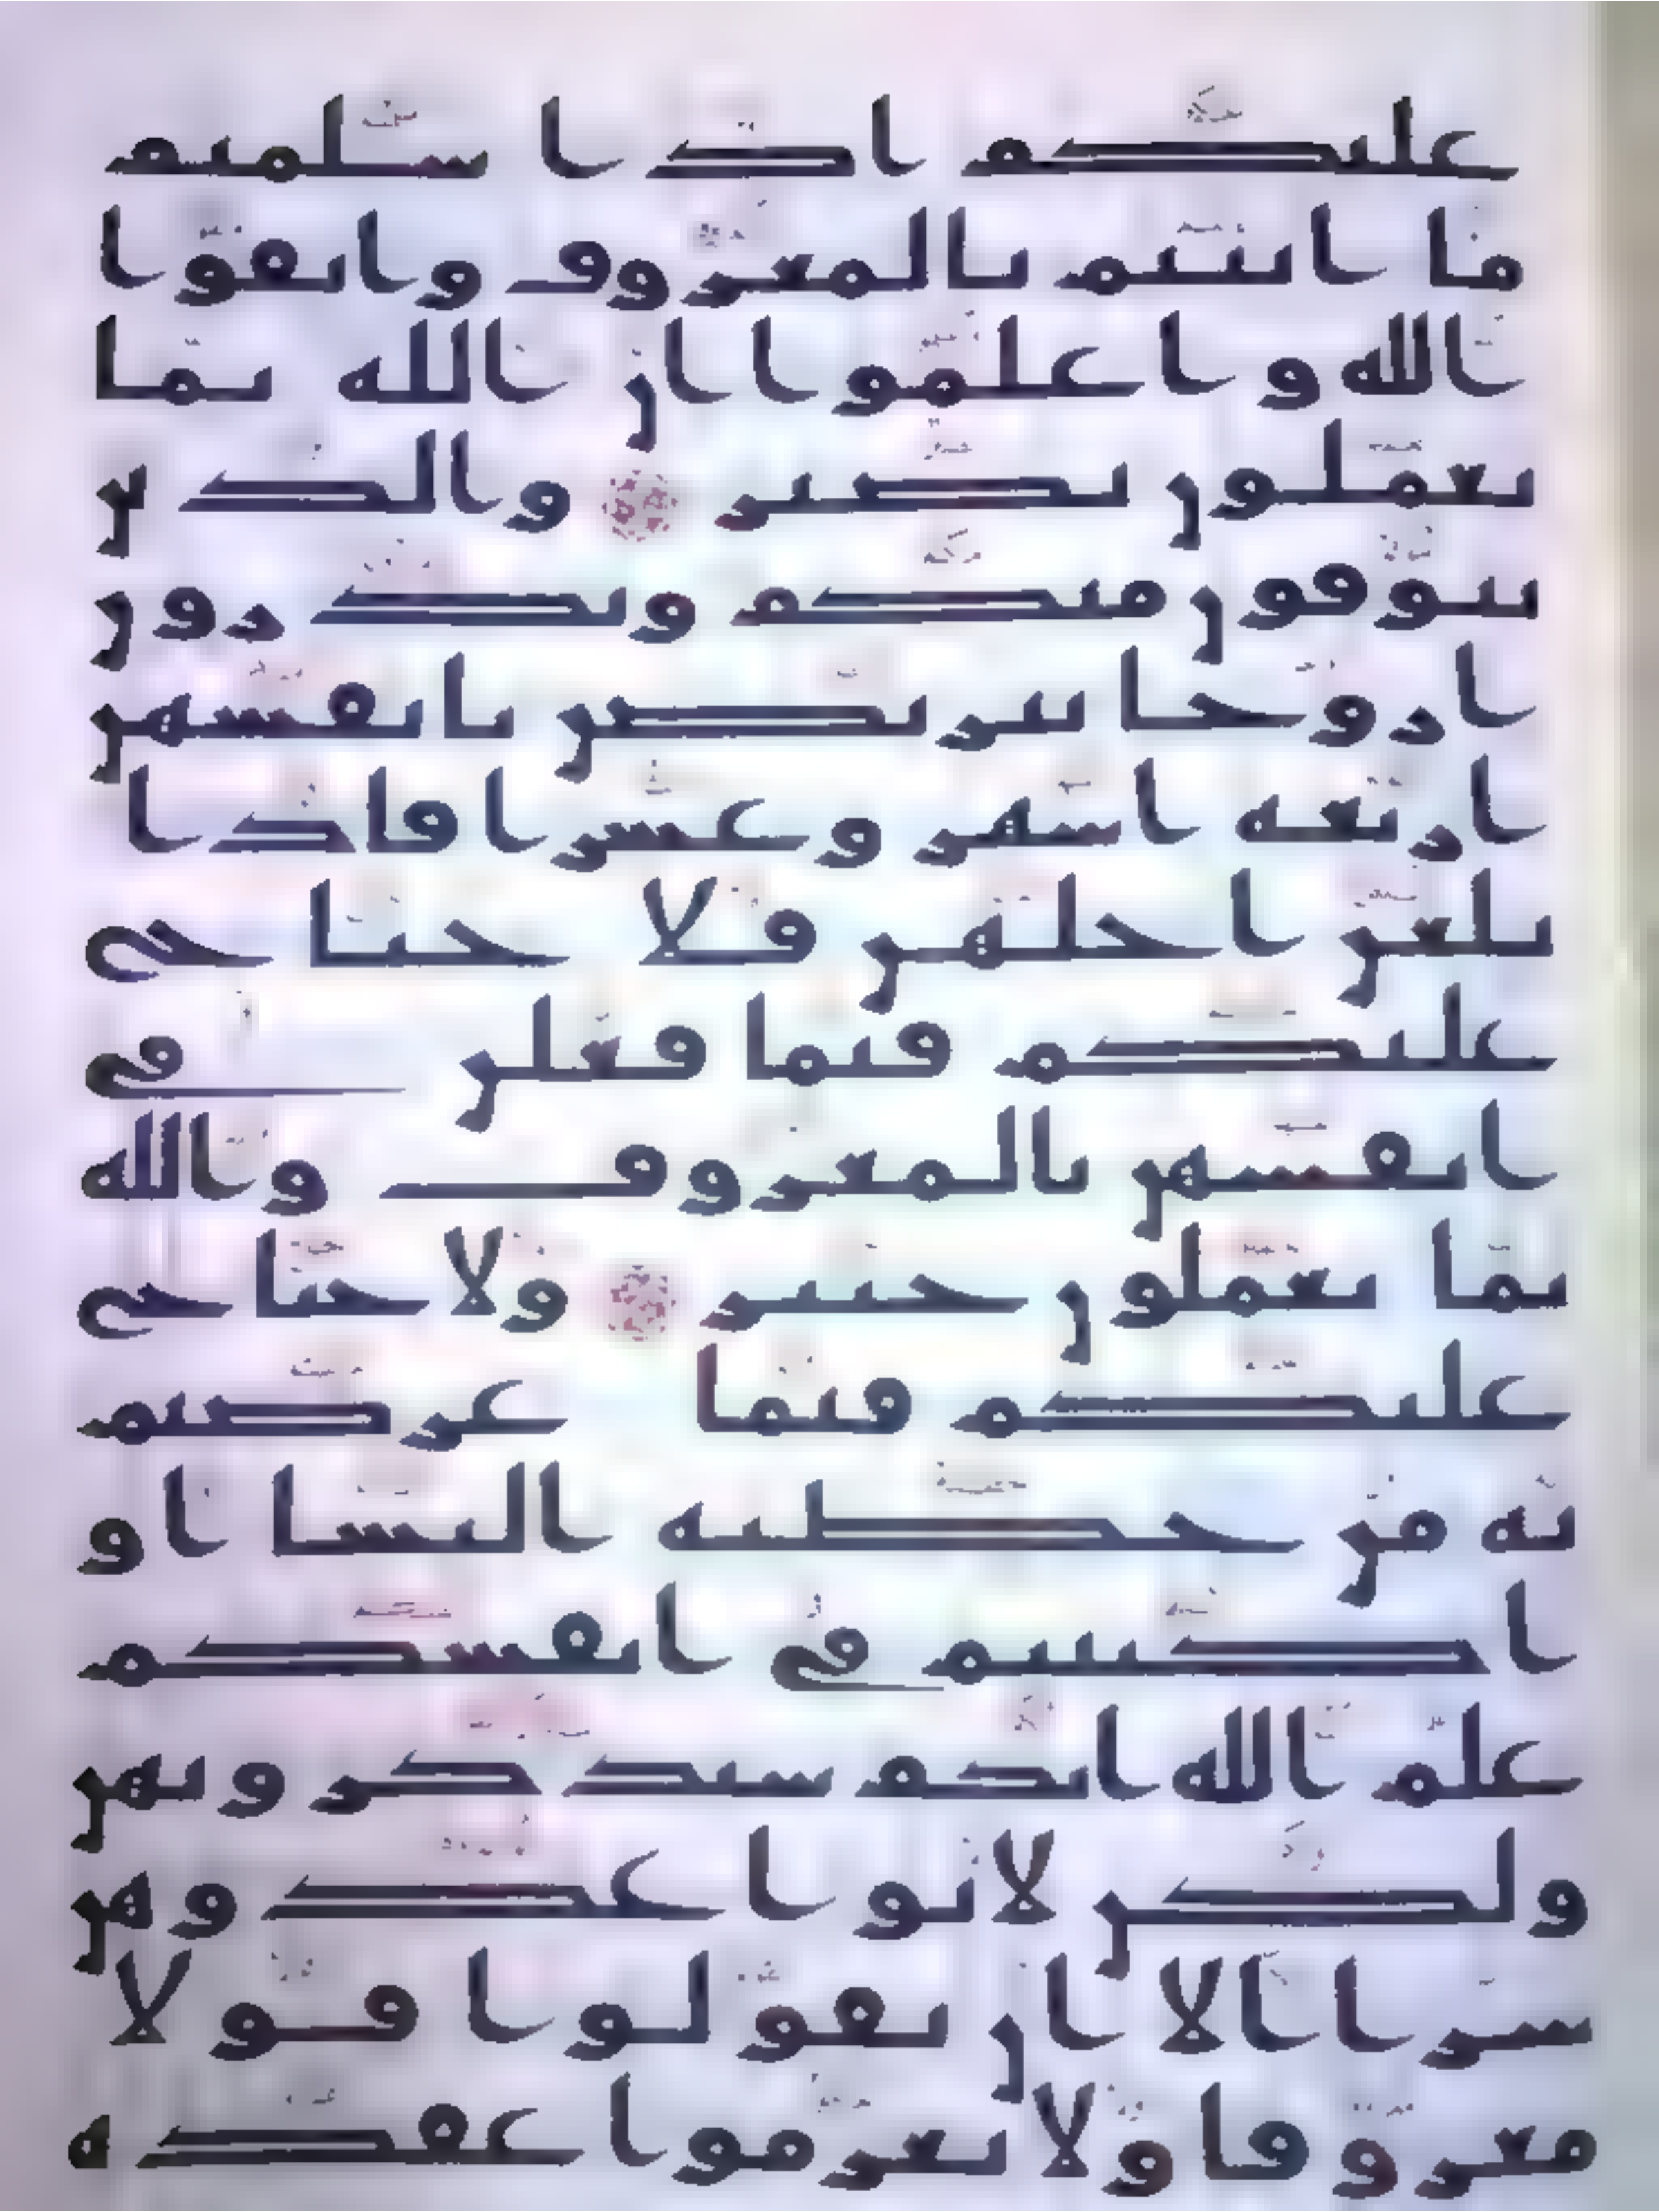 عليكم اذا سلمتم
ما اتيتم بالمعروف واتقوا
الله واعلموا ان الله بما
تعملون بصير والذين
يتوفون منكم ويذرون
ازوجا يتربصن بانفسهن
اربعه اشهر وعشرا فاذا
بلغن اجلهن فلا جناح
عليكم فيما فعلن في
انفسهن بالمعروف والله
بما تعملون خبير ولا جناح
عليكم فيما عرضتم
به من خطبه النسا او
اكننتم في انفسكم
علم الله انكم ستذكرونهن
ولكن لا توا عدوهن
سرا الا ان تقولوا قولا
معروفا ولا تعزموا عقده